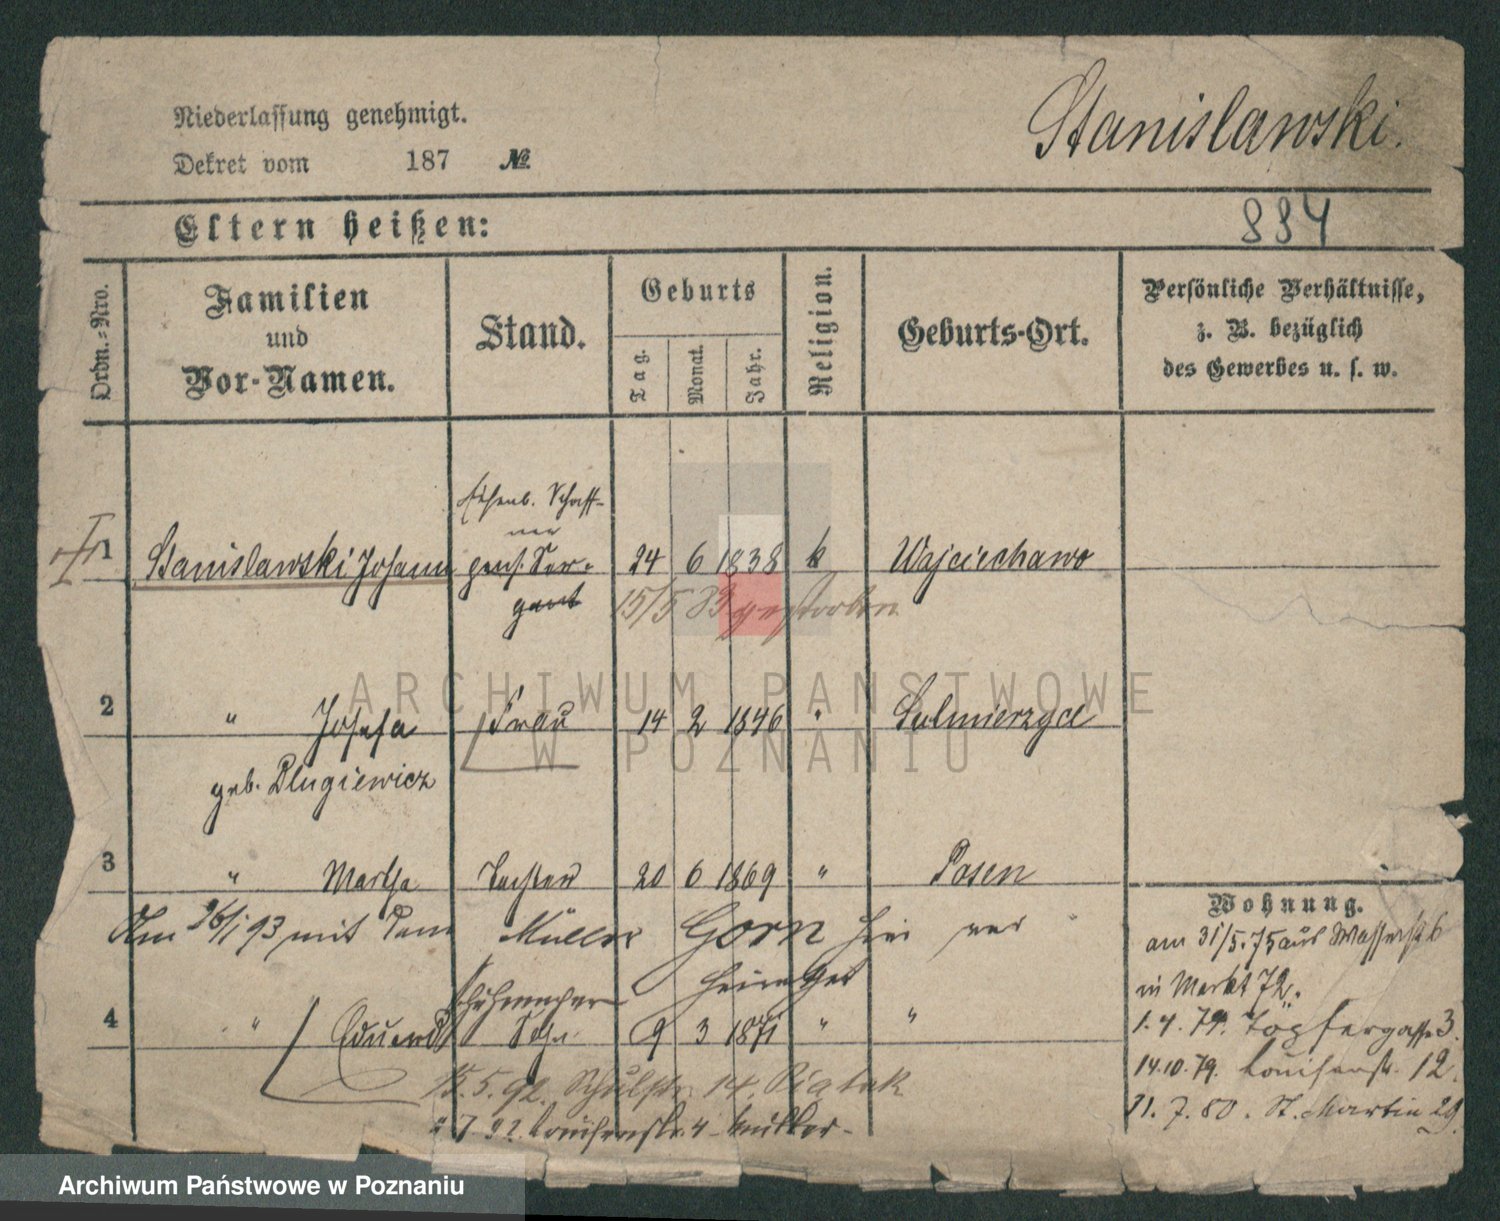 Niederlassung genehmigt.
Stanislawski.
Dekret vom 187 №
Eltern heißen:
884
Ordn.-Nro.
Familien
und
Vor-Namen.
Stand.
Geburts
Tag.
Monat.
Jahr.
Religion.
Geburts-Ort.
Persönliche Verhältnisse,
z. B. bezüglich
des Gewerbes u. s. w.
Eisenb. Schaff-
ner
1 Stanislawski Johann pens. Ser- 24 6 1838 k Wojciechowo
gant 15/5 83 gestorben
2 " Josefa Frau 14 2 1846 " Sulmierzyce
geb. Dlugiewicz
3 " Martha Tochter 20 6 1869 " Posen
Am 26/1 93 mit dem Müller Gorn hier ver
heirathet
Schuhmacher
4 " Eduard Sohn 9 3 1871 " "
15.5.92. Schulstr. 14. Piatak
" 7. 92. Louisenstr. 4 - Mutter -
Wohnung.
am 31/5.75 aus Wasserstr. 6
in Markt 72.
1.4.79. Töpfergasse 3.
14.10.79. Louisenstr. 12.
21.7.80. St. Martin 29.
ARCHIWUM PAŃSTWOWE
W POZNANIU
Archiwum Państwowe w Poznaniu